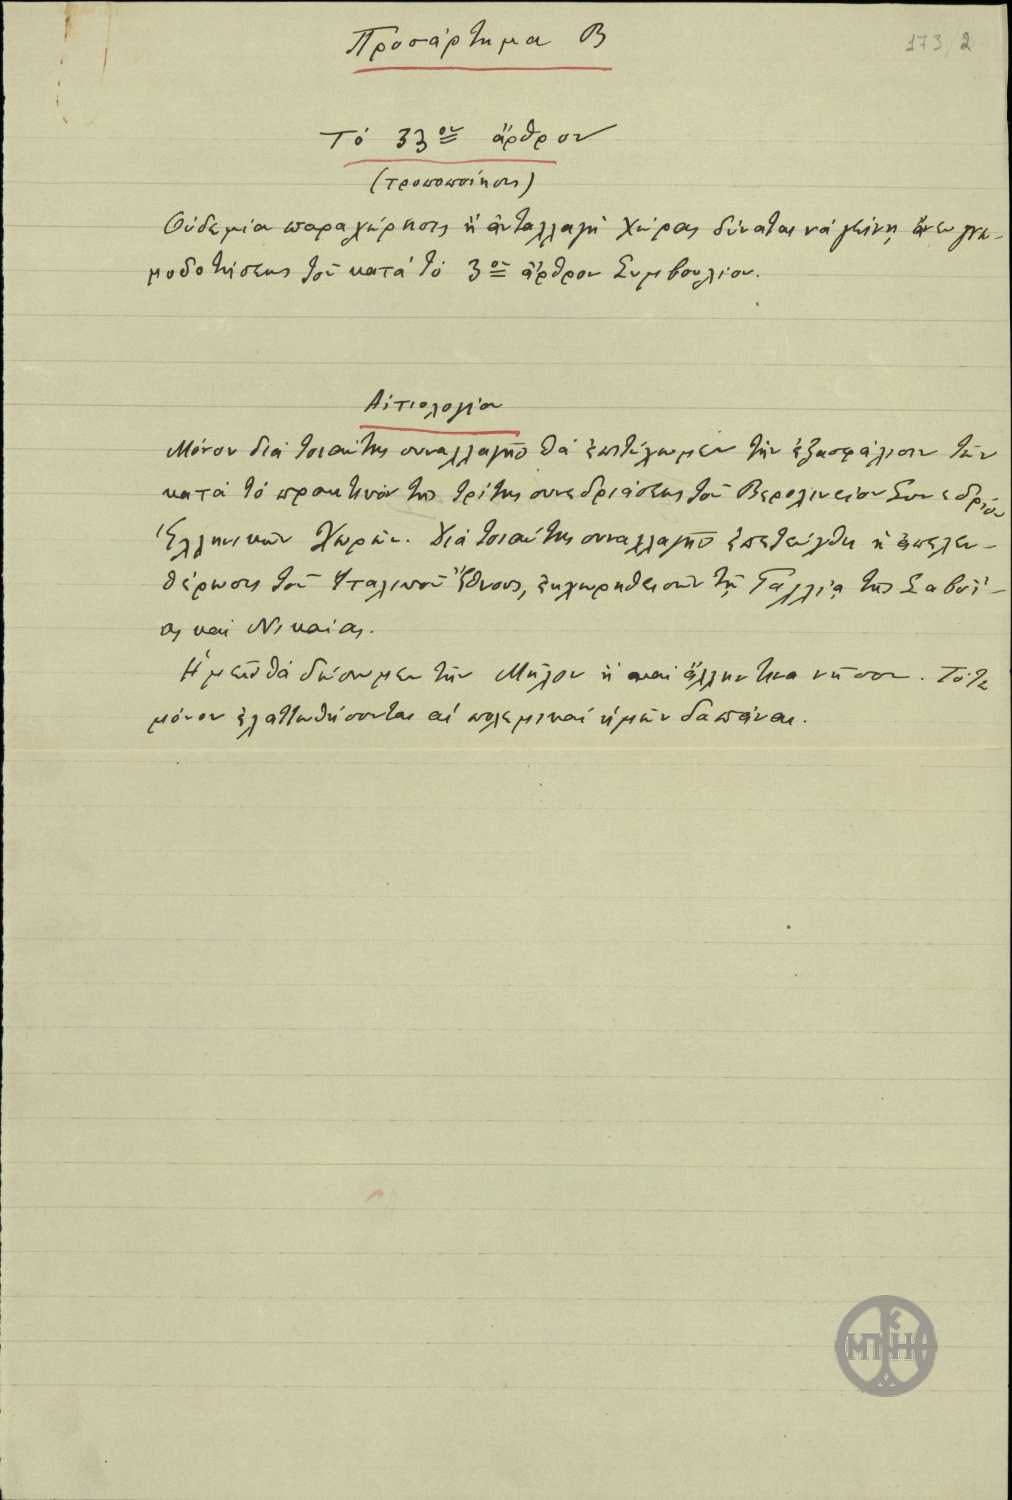 Προσάρτημα Β
173, 2
Τό 33ον ἄρθρον
(τροποποίησις)
Οὐδεμία παραχώρησις ἤ ἀνταλλαγή χώρας δύναται νά γείνῃ ἄνευ γνω-
μοδοτήσεως τοῦ κατά τό 3ον ἄρθρον Συμβουλίου.
Αἰτιολογία
Μόνον διά τοιαύτης συναλλαγῆς θά ἐπιτύχωμεν τήν ἐξασφάλισιν τῶν
κατά τό πρακτικόν τῆς τρίτης συνεδριάσεως τοῦ Βερολινείου Συνεδρίου
Ἑλληνικῶν Χωρῶν. Διά τοιαύτης συναλλαγῆς ἐπετεύχθη ἡ ἀπελευ-
θέρωσις τοῦ Ἰταλικοῦ Ἔθνους, ἐκχωρηθεισῶν τῇ Γαλλίᾳ τῆς Σαβοΐ-
ας καί Νικαίας.
Ἡμεῖς θά δώσωμεν τήν Μῆλον ἤ καί ἄλλην τινα νῆσον. Τότε
μόνον ἐλαττωθήσονται αἱ πολεμικαί ἡμῶν δαπάναι.
ΜΠΗ